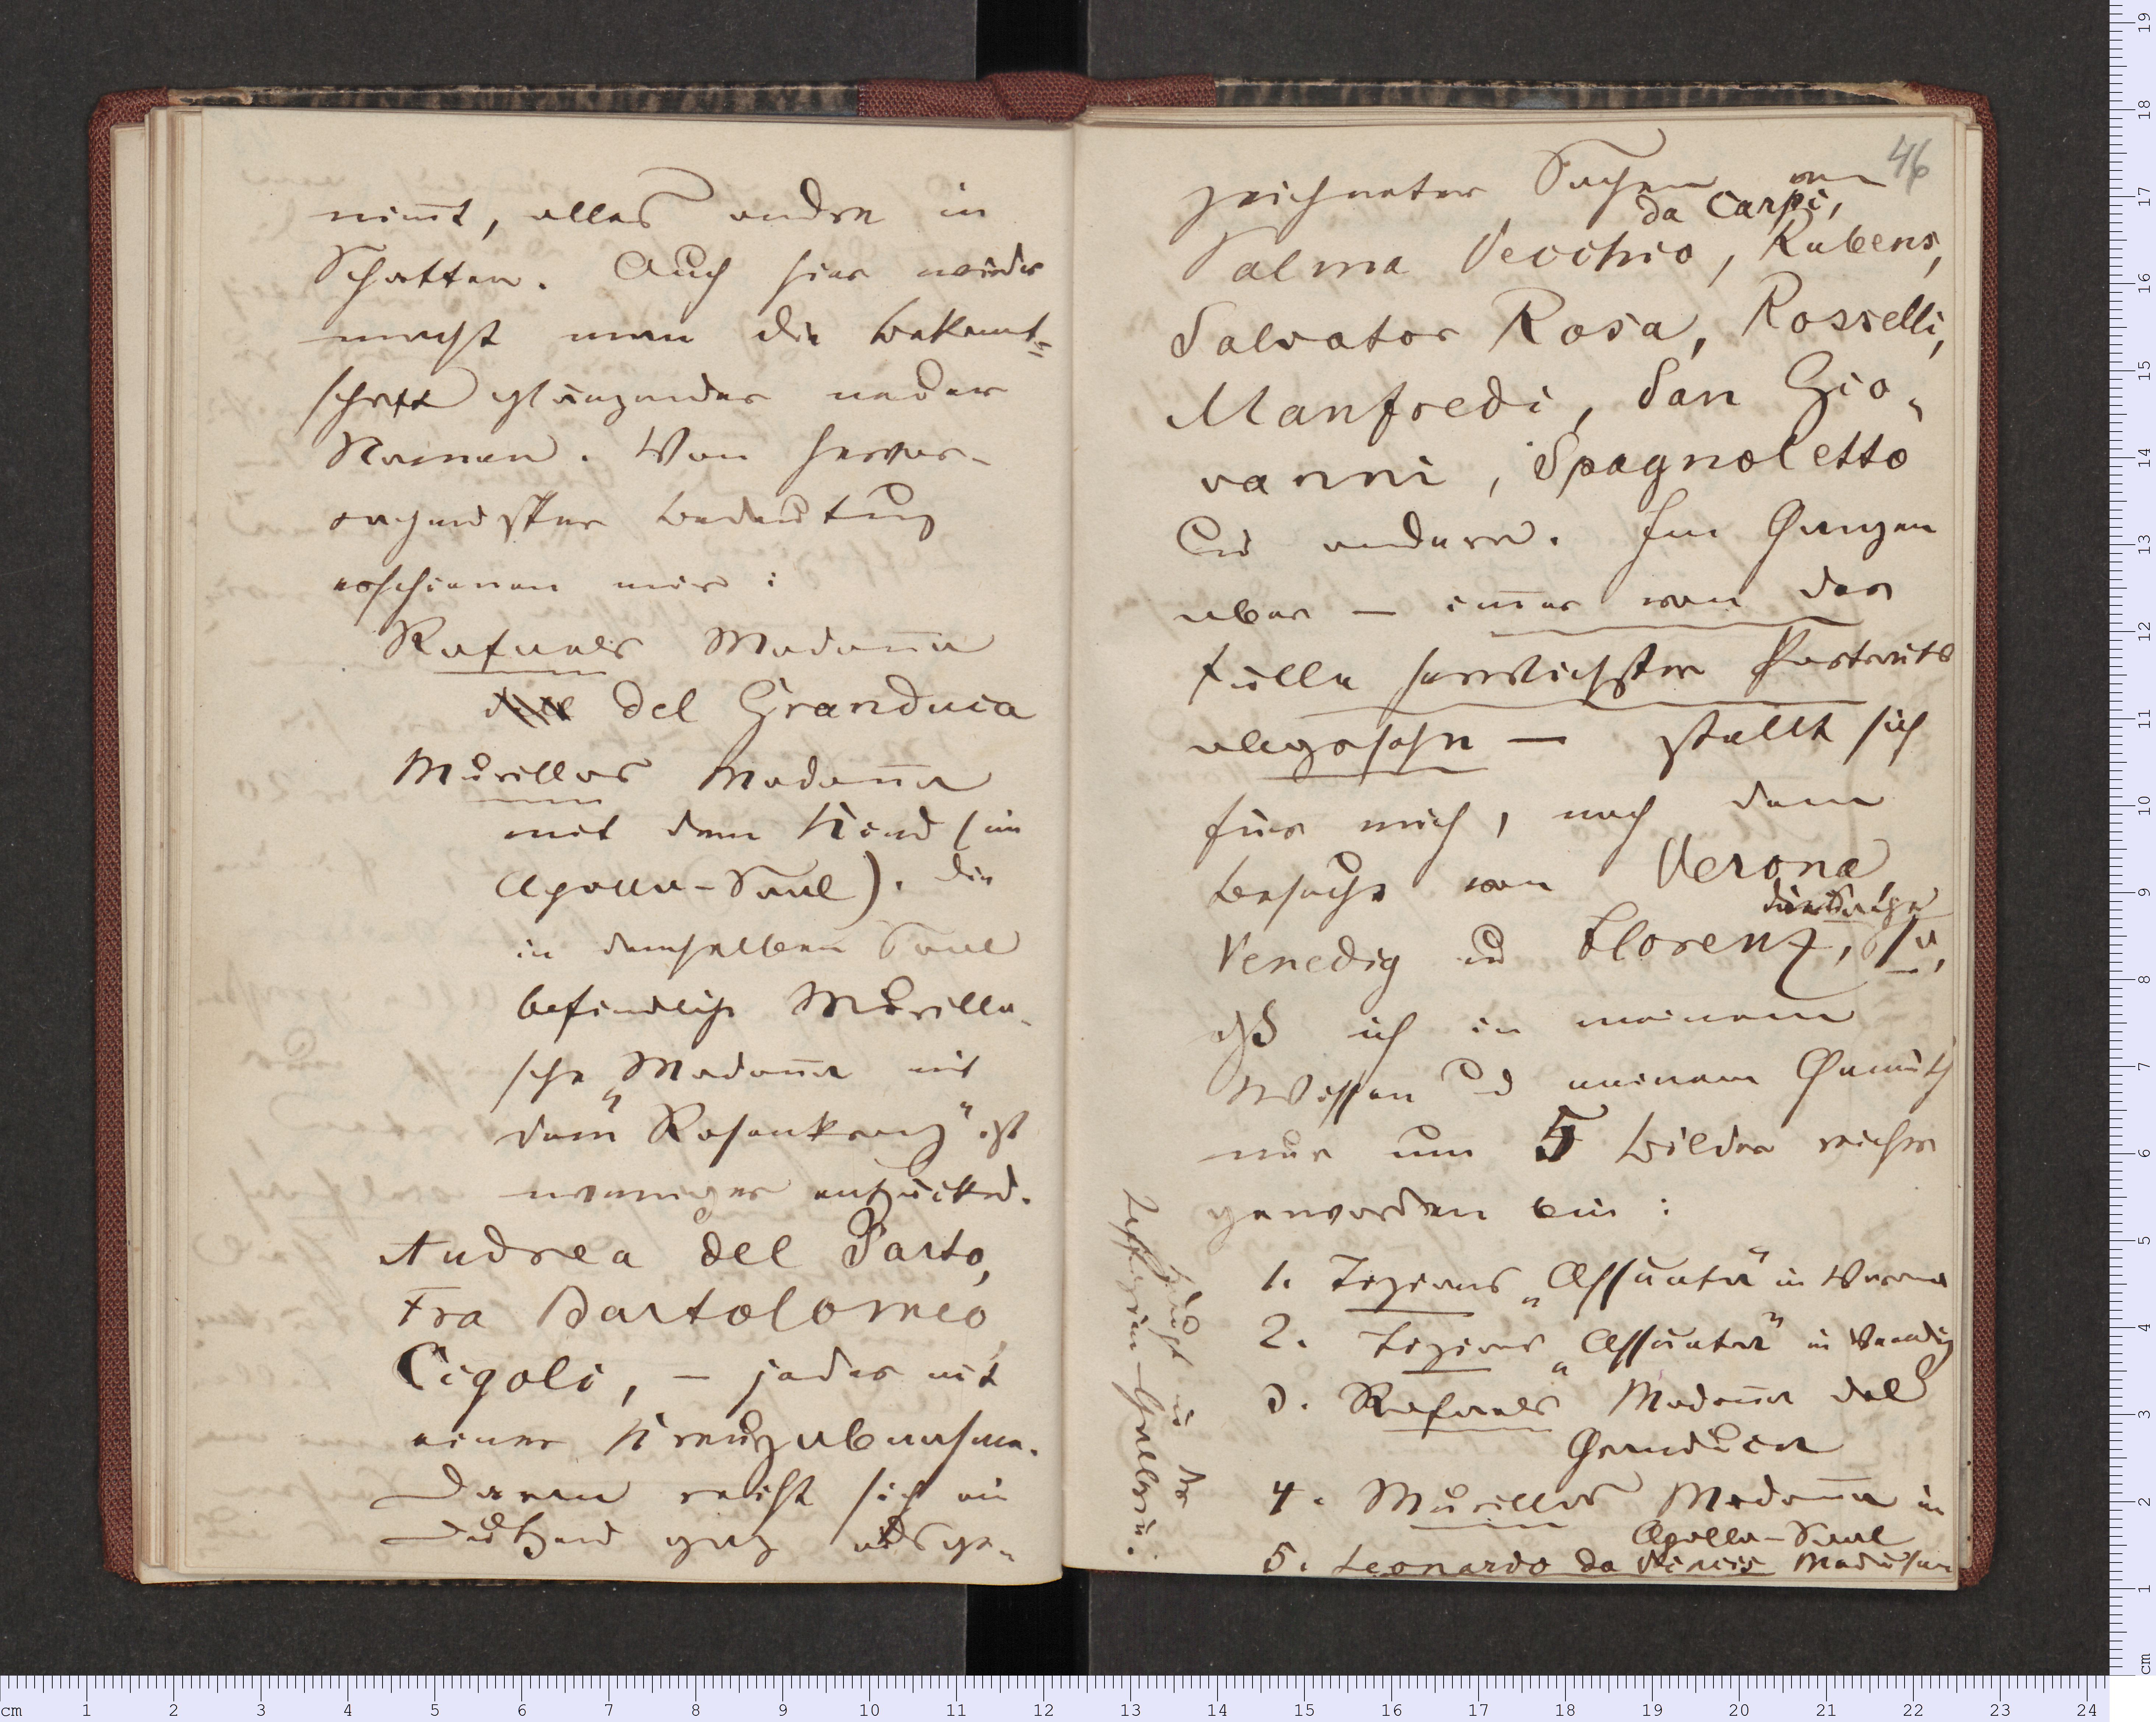 nim̄t, alles andre in
Schatten. Auch hier wieder
macht man die Bekannt-
schaft glänzender neuer
Namen. Von hervor-
ragendster Bedeutung
erschienen mir:
Rafaels Madon̄a
del Granduca
Murillos Madon̄a
mit dem Kind (im
Apollo-Saal). Die
in demselben Saal
befindliche Murillo-
sche „Madon̄a mit
dem Rosenkranz" ist
weniger entzückend.
Andrea del Sarto,
Fra Bartolomeo
Cigoli, – jeder mit
einer Kreuzabnahme.
Daran reiht sich ein
Dutzend ganz ausge-
46
zeichneter Sachen von
da Carpi,
Palma Vecchio, Rubens,
Salvator Rosa, Rosselli,
Manfredi, San Gio-
vanni, Spagnoletto
und andere. Im Ganzen
aber – im̄er von der
Fülle herrlichster Portraits
abgesehn – stellt sich
für mich, nach dem
Besuche von Verona
Venedig und Florenz, die Sache
so,
daß ich in meinem
Wissen und meinem Gemüth
nur um 5 Bilder reicher
geworden bin:
1. Tizians „Assunta" in Verona
2. Tizians „Assunta" in Venedig
3. Rafaels Madon̄a del
Granduca
4. Murillos Madon̄a im
Apollo-Saal
5. Leonardo da Vincis Medusen
haupt in der
Uffizien-Gallerie.